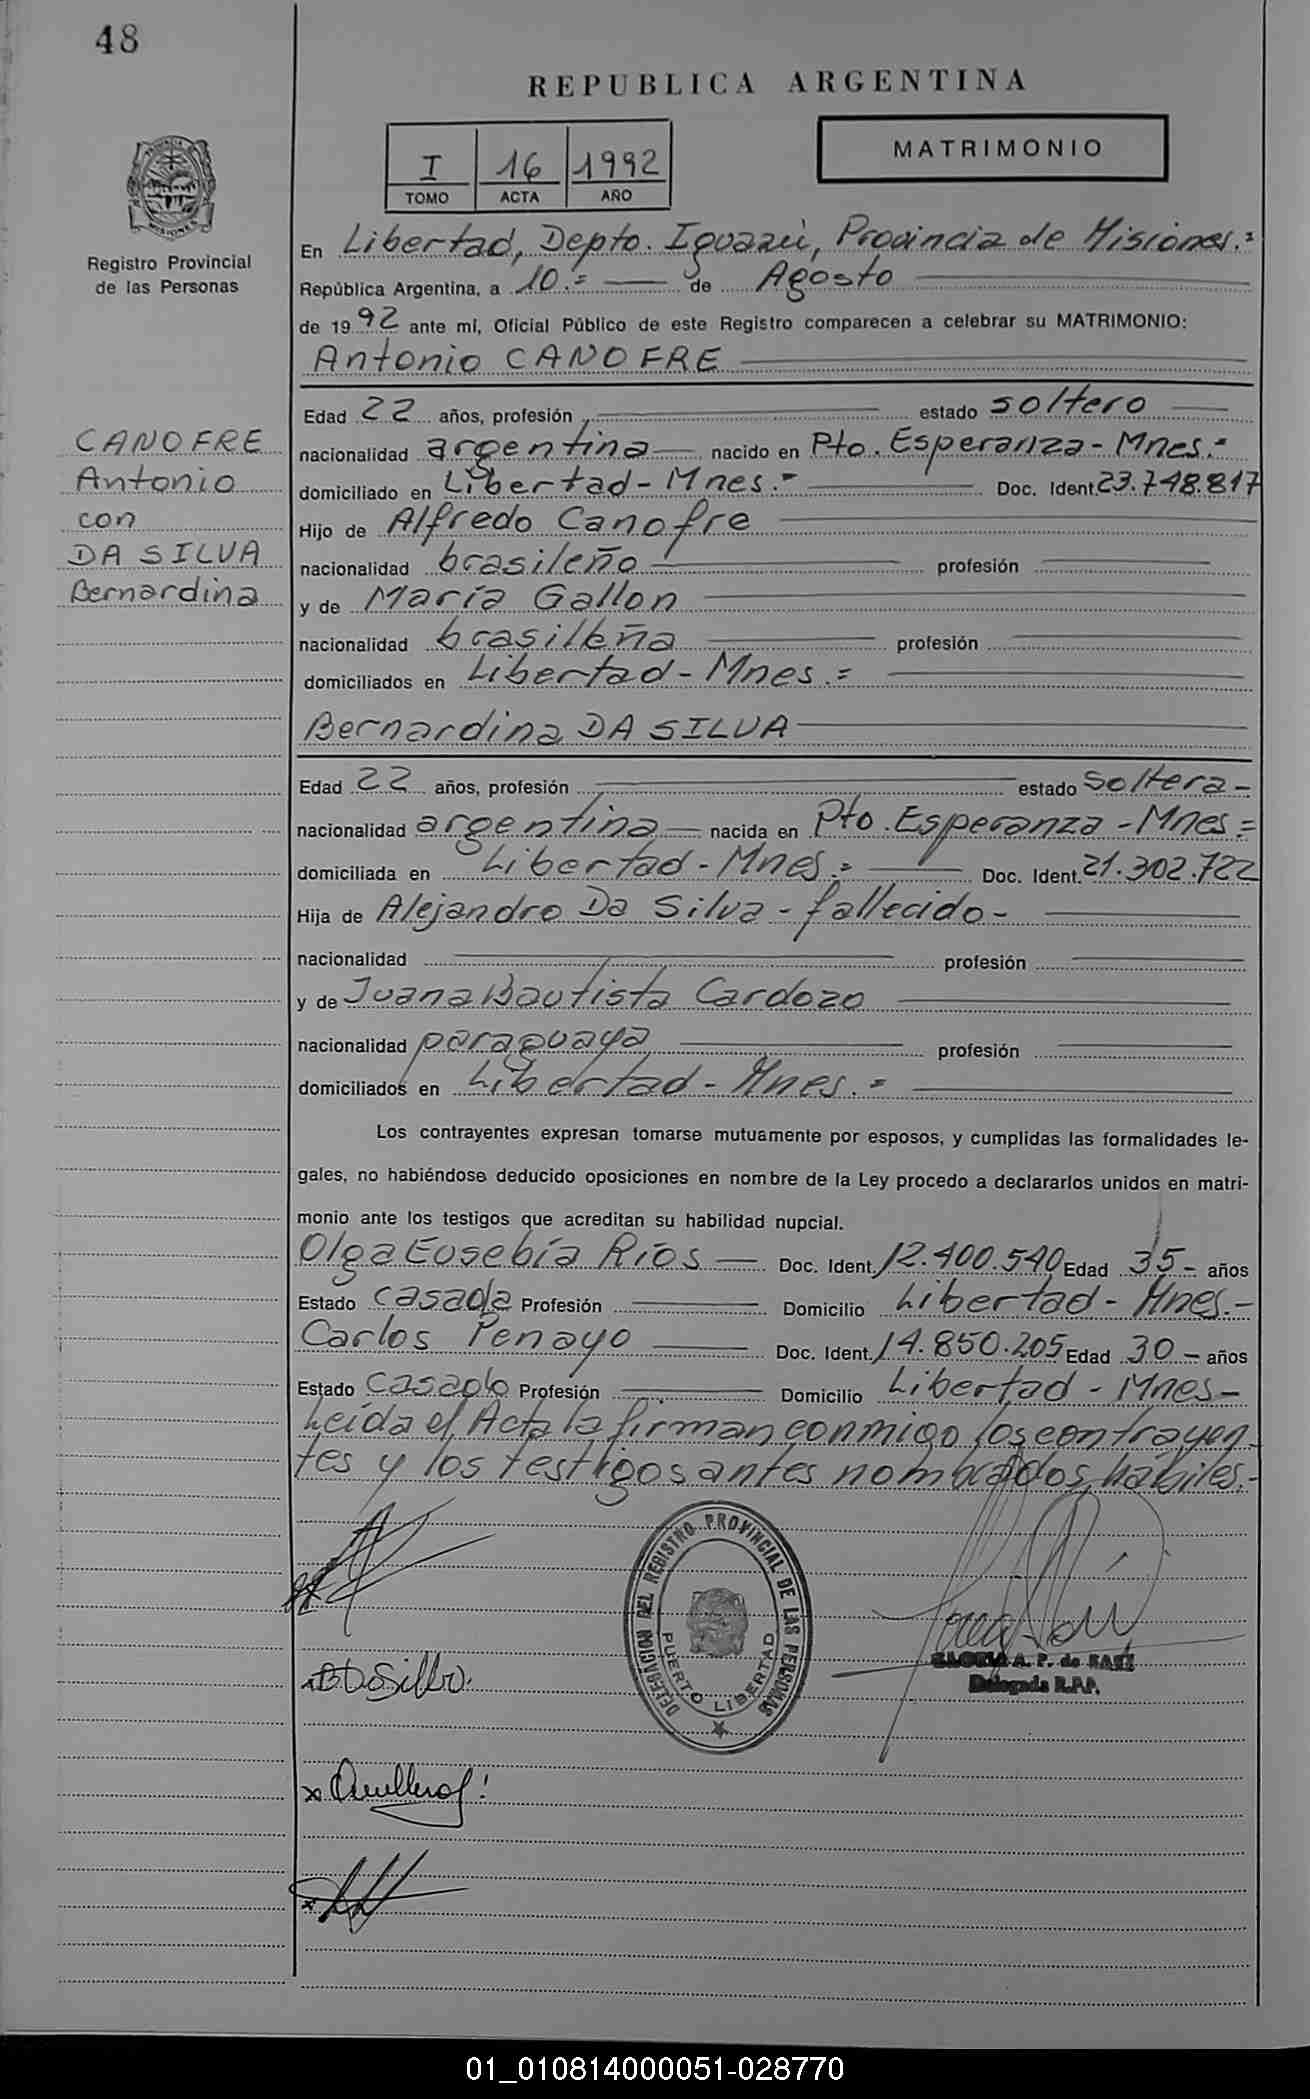 48
REPUBLICA ARGENTINA
I 16 1992
TOMO ACTA AÑO
MATRIMONIO
MISIONES
Registro Provincial
de las Personas
En Libertad, Depto. Iguazú, Provincia de Misiones.=
República Argentina, a 10.= de Agosto
de 1992 ante mí, Oficial Público de este Registro comparecen a celebrar su MATRIMONIO:
Antonio CANOFRE
CANOFRE
Antonio
con
DA SILVA
Bernardina
Edad 22 años, profesión estado soltero
nacionalidad argentina nacido en Pto. Esperanza - Mnes.=
domiciliado en Libertad - Mnes.= Doc. Ident. 23.748.817
Hijo de Alfredo Canofre
nacionalidad brasileño profesión
y de María Gallon
nacionalidad brasileña profesión
domiciliados en Libertad - Mnes.=
Bernardina DA SILVA
Edad 22 años, profesión estado soltera -
nacionalidad argentina nacida en Pto. Esperanza - Mnes.=
domiciliada en Libertad - Mnes.= Doc. Ident. 21.302.722
Hija de Alejandro Da Silva - fallecido -
nacionalidad profesión
y de Juana Bautista Cardozo
nacionalidad paraguaya profesión
domiciliados en Libertad - Mnes.=
Los contrayentes expresan tomarse mutuamente por esposos, y cumplidas las formalidades le-
gales, no habiéndose deducido oposiciones en nombre de la Ley procedo a declararlos unidos en matri-
monio ante los testigos que acreditan su habilidad nupcial.
Olga Eusebia Ríos Doc. Ident. 12.400.540 Edad 35 - años
Estado casada Profesión Domicilio Libertad - Mnes.-
Carlos Penayo Doc. Ident. 14.850.205 Edad 30 - años
Estado casado Profesión Domicilio Libertad - Mnes -
Leída el Acta la firman conmigo los contrayen-
tes y los testigos antes nombrados, hábiles.-
DELEGACION DEL REGISTRO PROVINCIAL DE LAS PERSONAS
PUERTO LIBERTAD
GLORIA A. P. de
Delegada R.P.P.
01_010814000051-028770